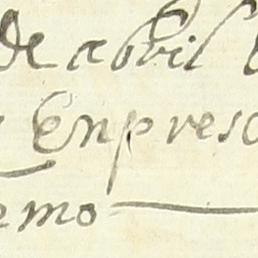 de abril
Enpres
emo